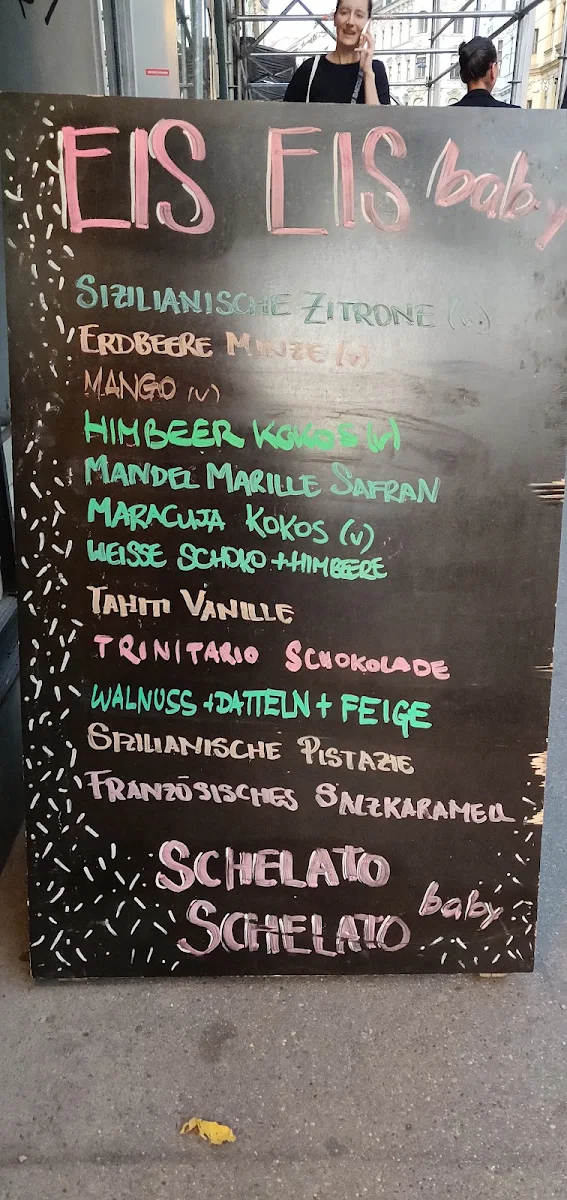 EIS EIS baby
SIZILIANISCHE ZITRONE (v)
ERDBEERE MINZE (v)
MANGO (v)
HIMBEER KOKOS (v)
MANDEL MARILLE SAFRAN
MARACUJA KOKOS (v)
WEISSE SCHOKO + HIMBEERE
TAHITI VANILLE
TRINITARIO SCHOKOLADE
WALNUSS + DATTELN + FEIGE
SIZILIANISCHE PISTAZIE
FRANZÖSISCHES SALZKARAMELL
SCHELATO
SCHELATO baby